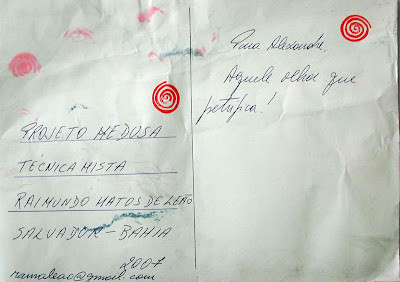 PROJETO MEDUSA
TECNICA MISTA
RAIMUNDO MATOS DE LEÃO
SALVADOR - BAHIA
2007
ramaleao@gmail.com
Para Alexandre,
Aquele olhar que
petrifica!